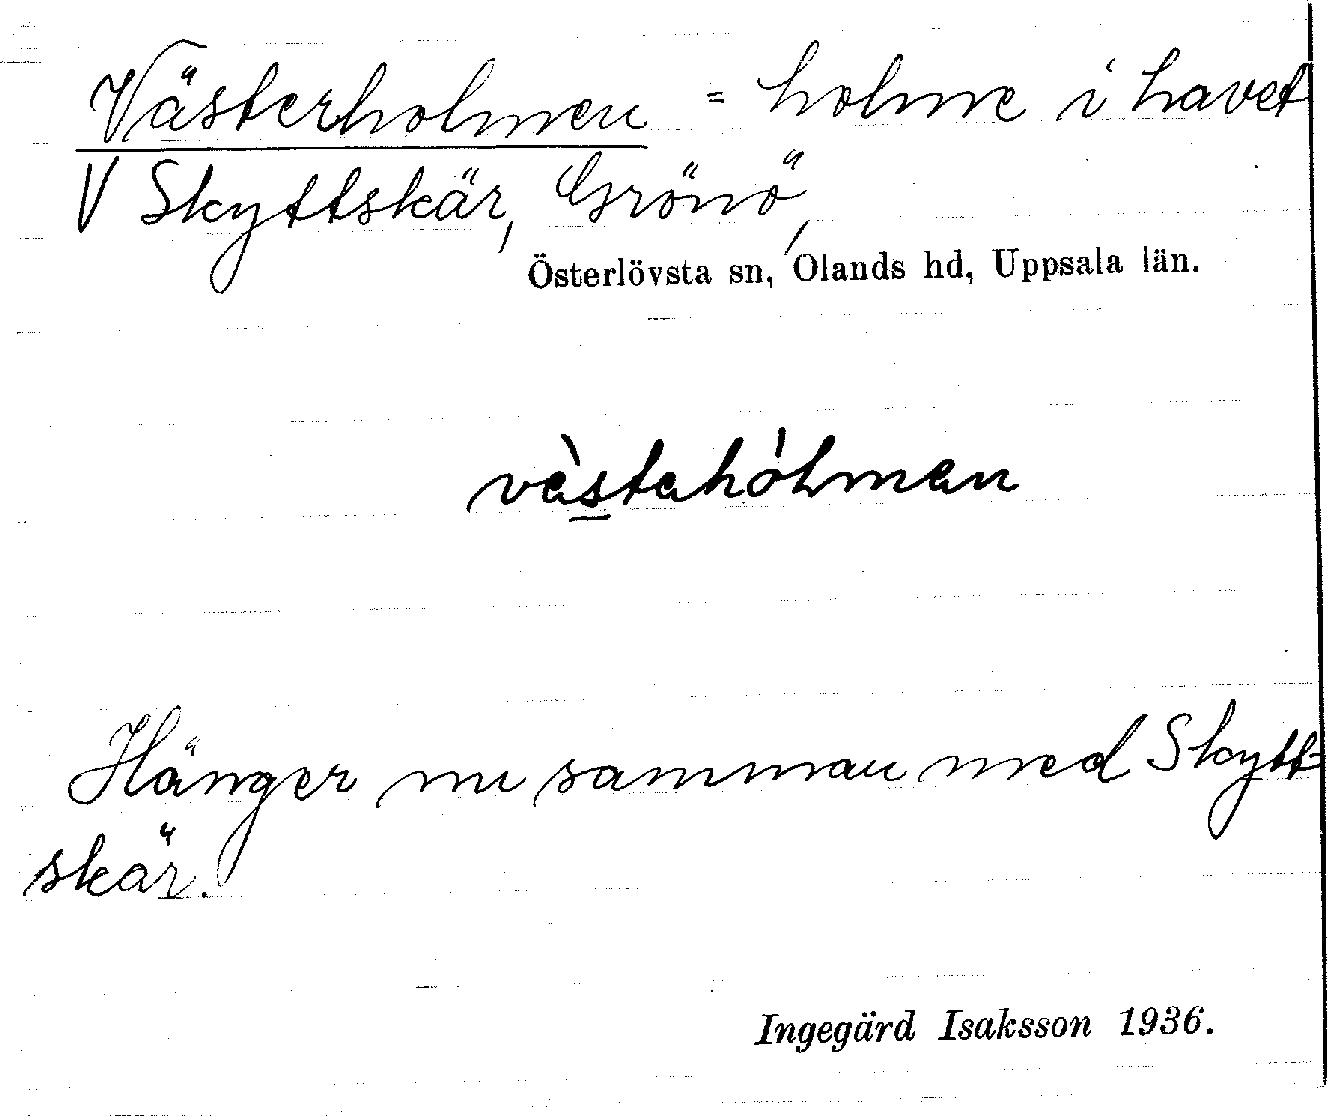 Västerholmen = holme i havet
V Skyttskär, Grönö,
Österlövsta sn, Olands hd, Uppsala län.
vàstahólman
Hänger nu samman med Skytt-
skär.
Ingegärd Isaksson 1936.